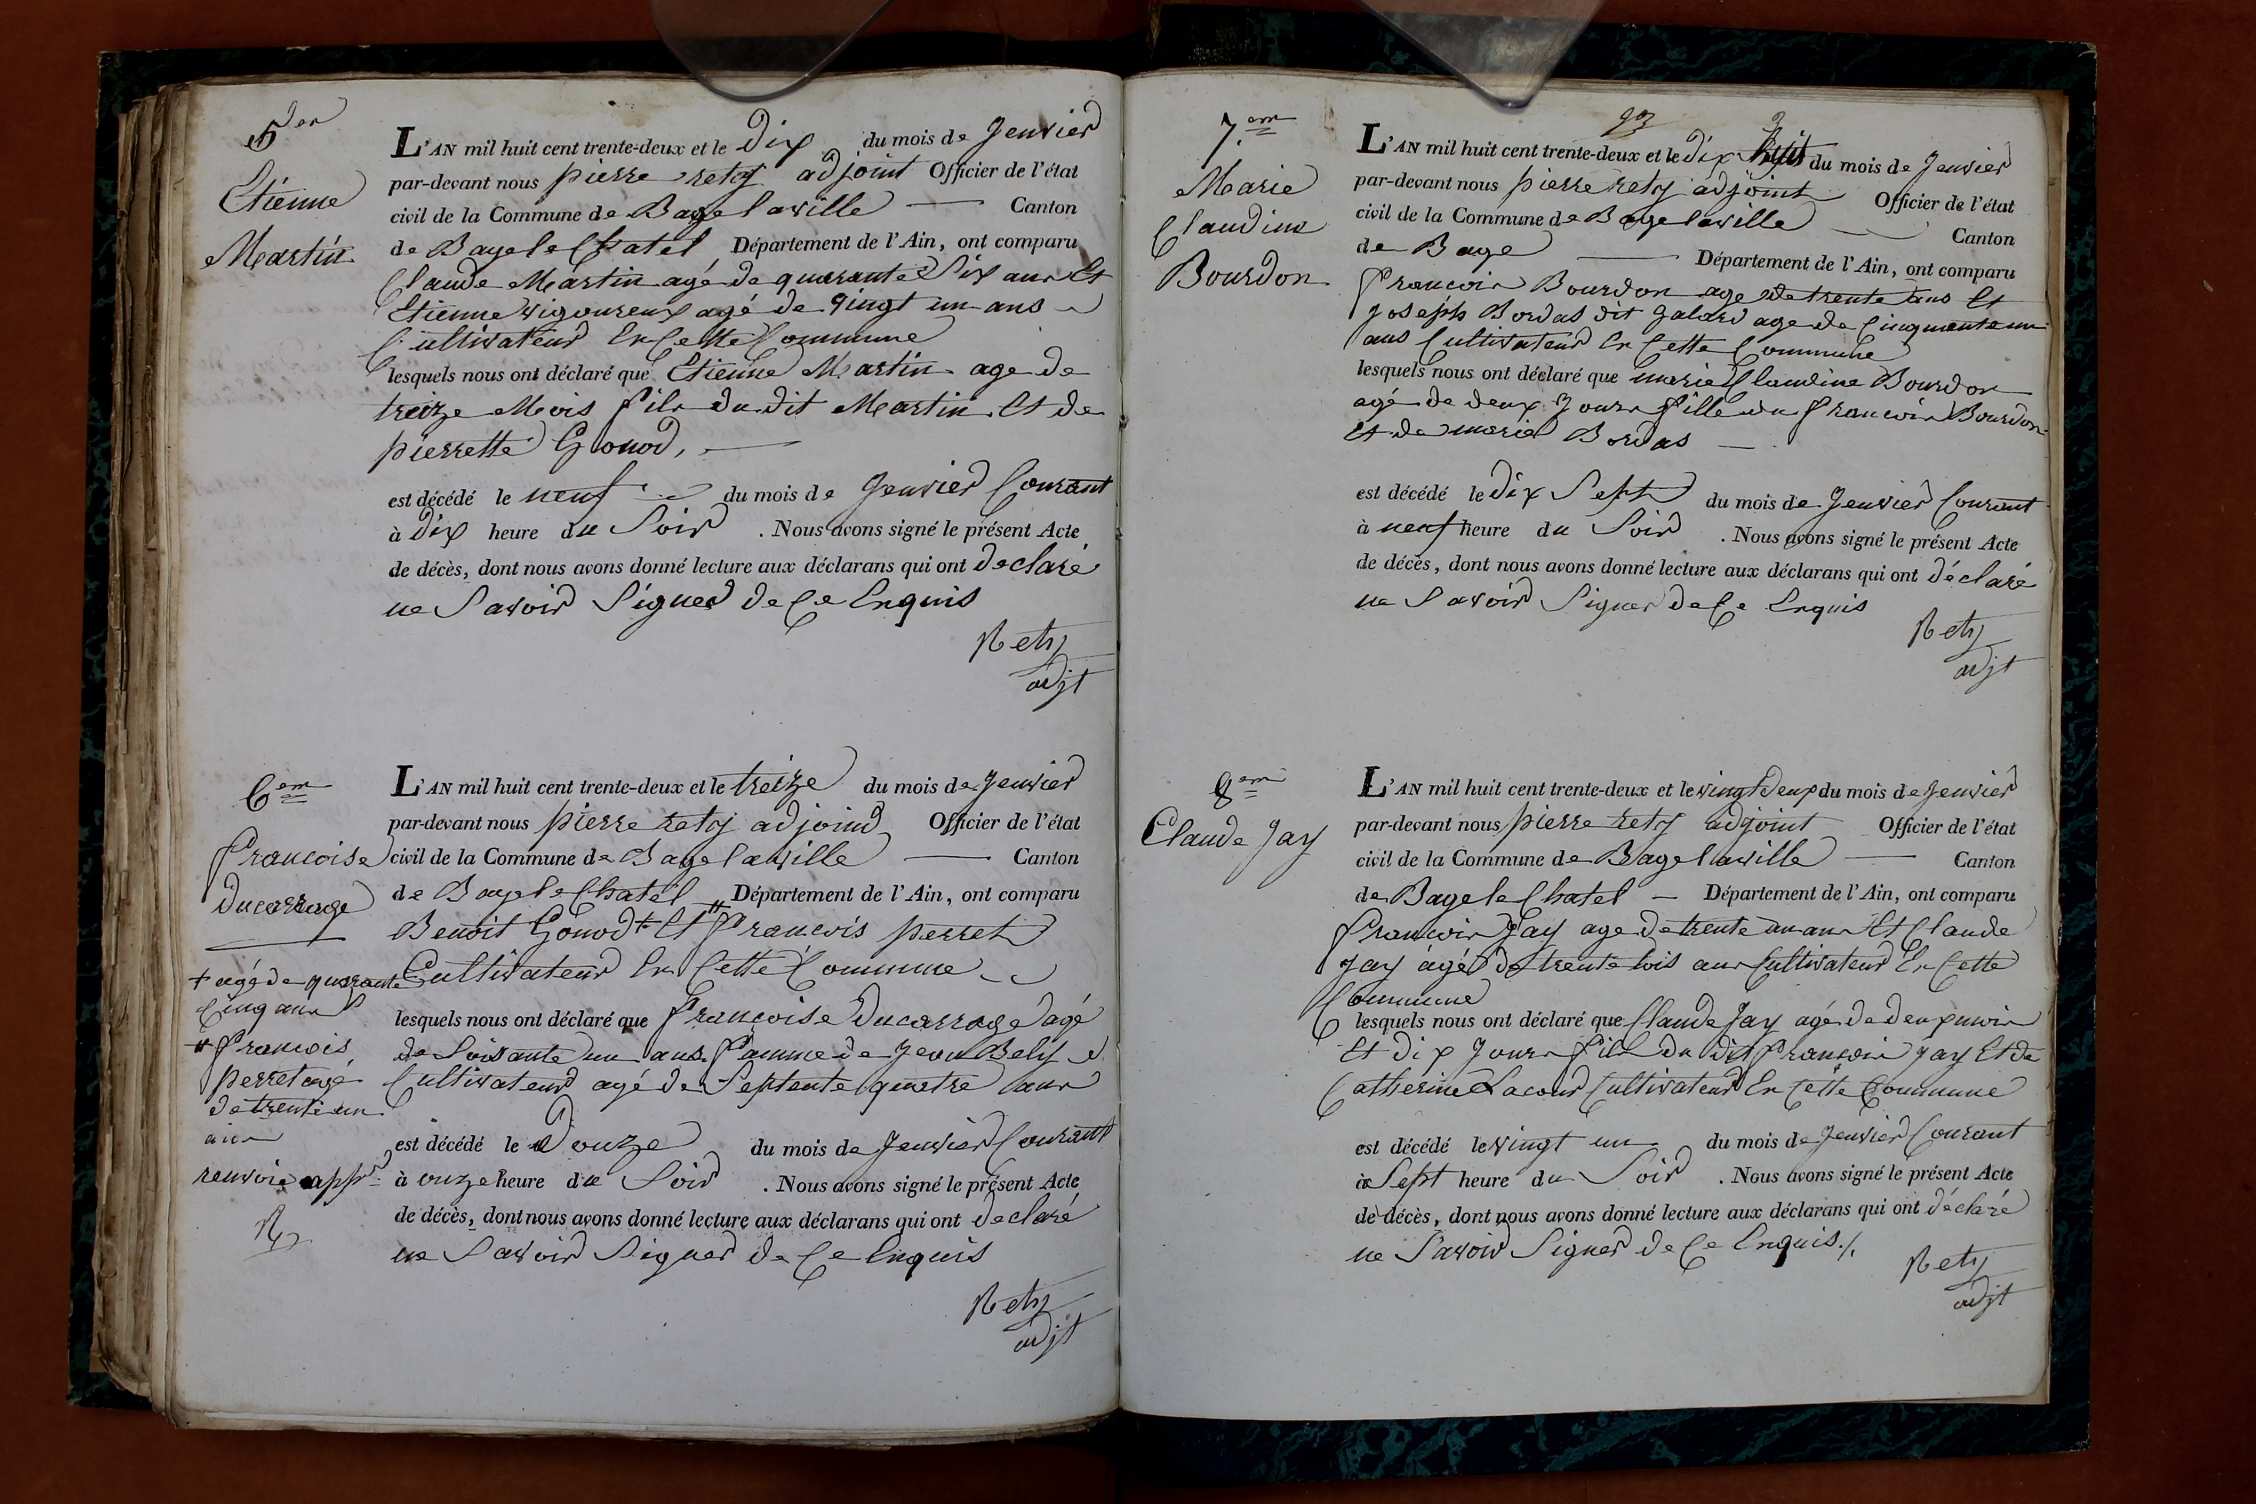 5.em
Etienne
Martin
L'AN mil huit cent trente-deux et le Dix du mois de Jenvier
par-devant nous pierre rety adjoint Officier de l'état
civil de la Commune de Bage laville — Canton
de Bage le Chatel Département de l'Ain, ont comparu
Claude Martin agé de quarante Six ans Et
Etienne vigoureux agé de vingt un ans
Cultivateur En Cette Commune
lesquels nous ont déclaré que Etienne Martin age de
treize Mois fils du dit Martin Et de
pierrette Gonod, —
est décédé le neuf du mois de Jenvier Courant
à Dix heure du Soir . Nous avons signé le présent Acte
de décès, dont nous avons donné lecture aux déclarans qui ont declaré
ne Savoir Signer de Ce Enquis
Rety
adjt
6em
Francoise
Ducarrage
+ agé de quarante
Cinq ans
# francois
perret agé
de trente un
ans
renvoie appr
L'AN mil huit cent trente-deux et le treize du mois de Jenvier
par-devant nous pierre rety adjoind Officier de l'état
civil de la Commune de Bage laville — Canton
de Bage le Chatel Département de l'Ain, ont comparu
Benoit Gonod + Et # Francois perret
Cultivateur En Cette Commune
lesquels nous ont déclaré que Francoise Ducarrage agé
de Soisante un ans. Famme de Jean Bely
Cultivateur agé de Septente quatre ans
est décédé le Douze du mois de Jenvier Courant
à onze heure du Soir . Nous avons signé le présent Acte
de décès, dont nous avons donné lecture aux déclarans qui ont declaré
ne Savoir Signer de Ce Enquis
Rety
adjt
93 3
7.em
Marie
Claudine
Bourdon
L'AN mil huit cent trente-deux et le dix huit du mois de Jenvier
par-devant nous pierre rety adjoint Officier de l'état
civil de la Commune de Bage laville — Canton
de Bage — Département de l'Ain, ont comparu
Francois Bourdon age de trente ans Et
Joseph Bordas dit Galard age de Cinquante un
ans Cultivateur En Cette Commune
lesquels nous ont déclaré que marie Claudine Bourdon
agé de deux Jours fille du Francois Bourdon
Et de marie Bordas —
est décédé le Dix Sept du mois de Jenvier Courant
à neuf heure du Soir . Nous avons signé le présent Acte
de décès, dont nous avons donné lecture aux déclarans qui ont déclaré
ne Savoir Signer de Ce Enquis
Rety
adjt
8em
Claude Jay
L'AN mil huit cent trente-deux et le vingt Deux du mois de Jenvier
par-devant nous pierre rety adjoint Officier de l'état
civil de la Commune de Bage laville — Canton
de Bage le Chatel — Département de l'Ain, ont comparu
Francois Jay age de trente un ans Et Claude
Jay agé de trente tois ans Cultivateur En Cette
Commune
lesquels nous ont déclaré que Claude Jay agé de deux mois
Et dix Jours fils du dit Francois Jay Et de
Catherine Lacour Cultivateur En Cette Commune
est décédé le vingt un du mois de Jenvier Courant
à Sept heure du Soir . Nous avons signé le présent Acte
de décès, dont nous avons donné lecture aux déclarans qui ont déclaré
ne Savoir Signer de Ce Enquis ./.
Rety
adjt